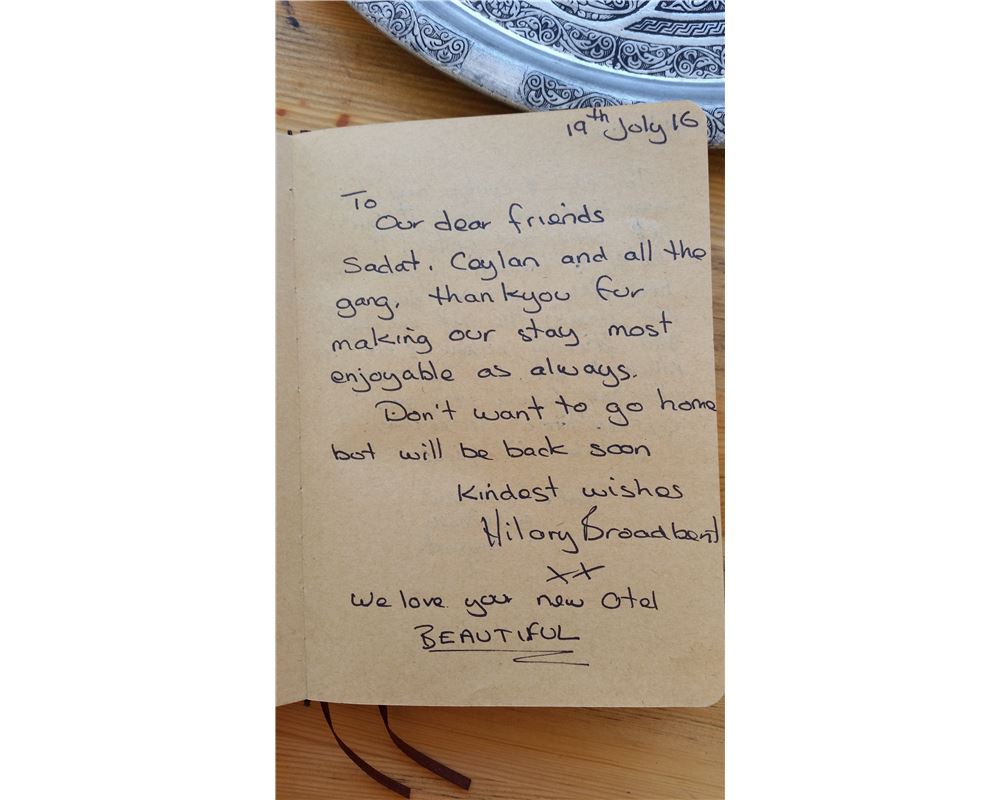 19th July 16
To
Our dear friends
Sadat. Caylan and all the
gang. thankyou for
making our stay most
enjoyable as always.
Don't want to go home
but will be back soon
Kindest wishes
Hilary Broadbent
xx
We love your new Otel
BEAUTIFUL